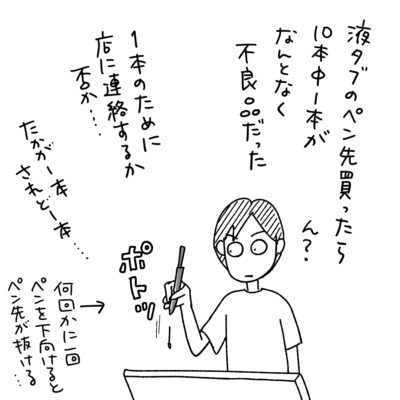 液タブのペン先買ったら
10本中1本が
なんとなく
不良品だった
ん?
1本のために
店に連絡するか
否か……
たかが一本
されど一本……
ポトッ
何回かに一回
ペンを下向けると
ペン先が抜ける…